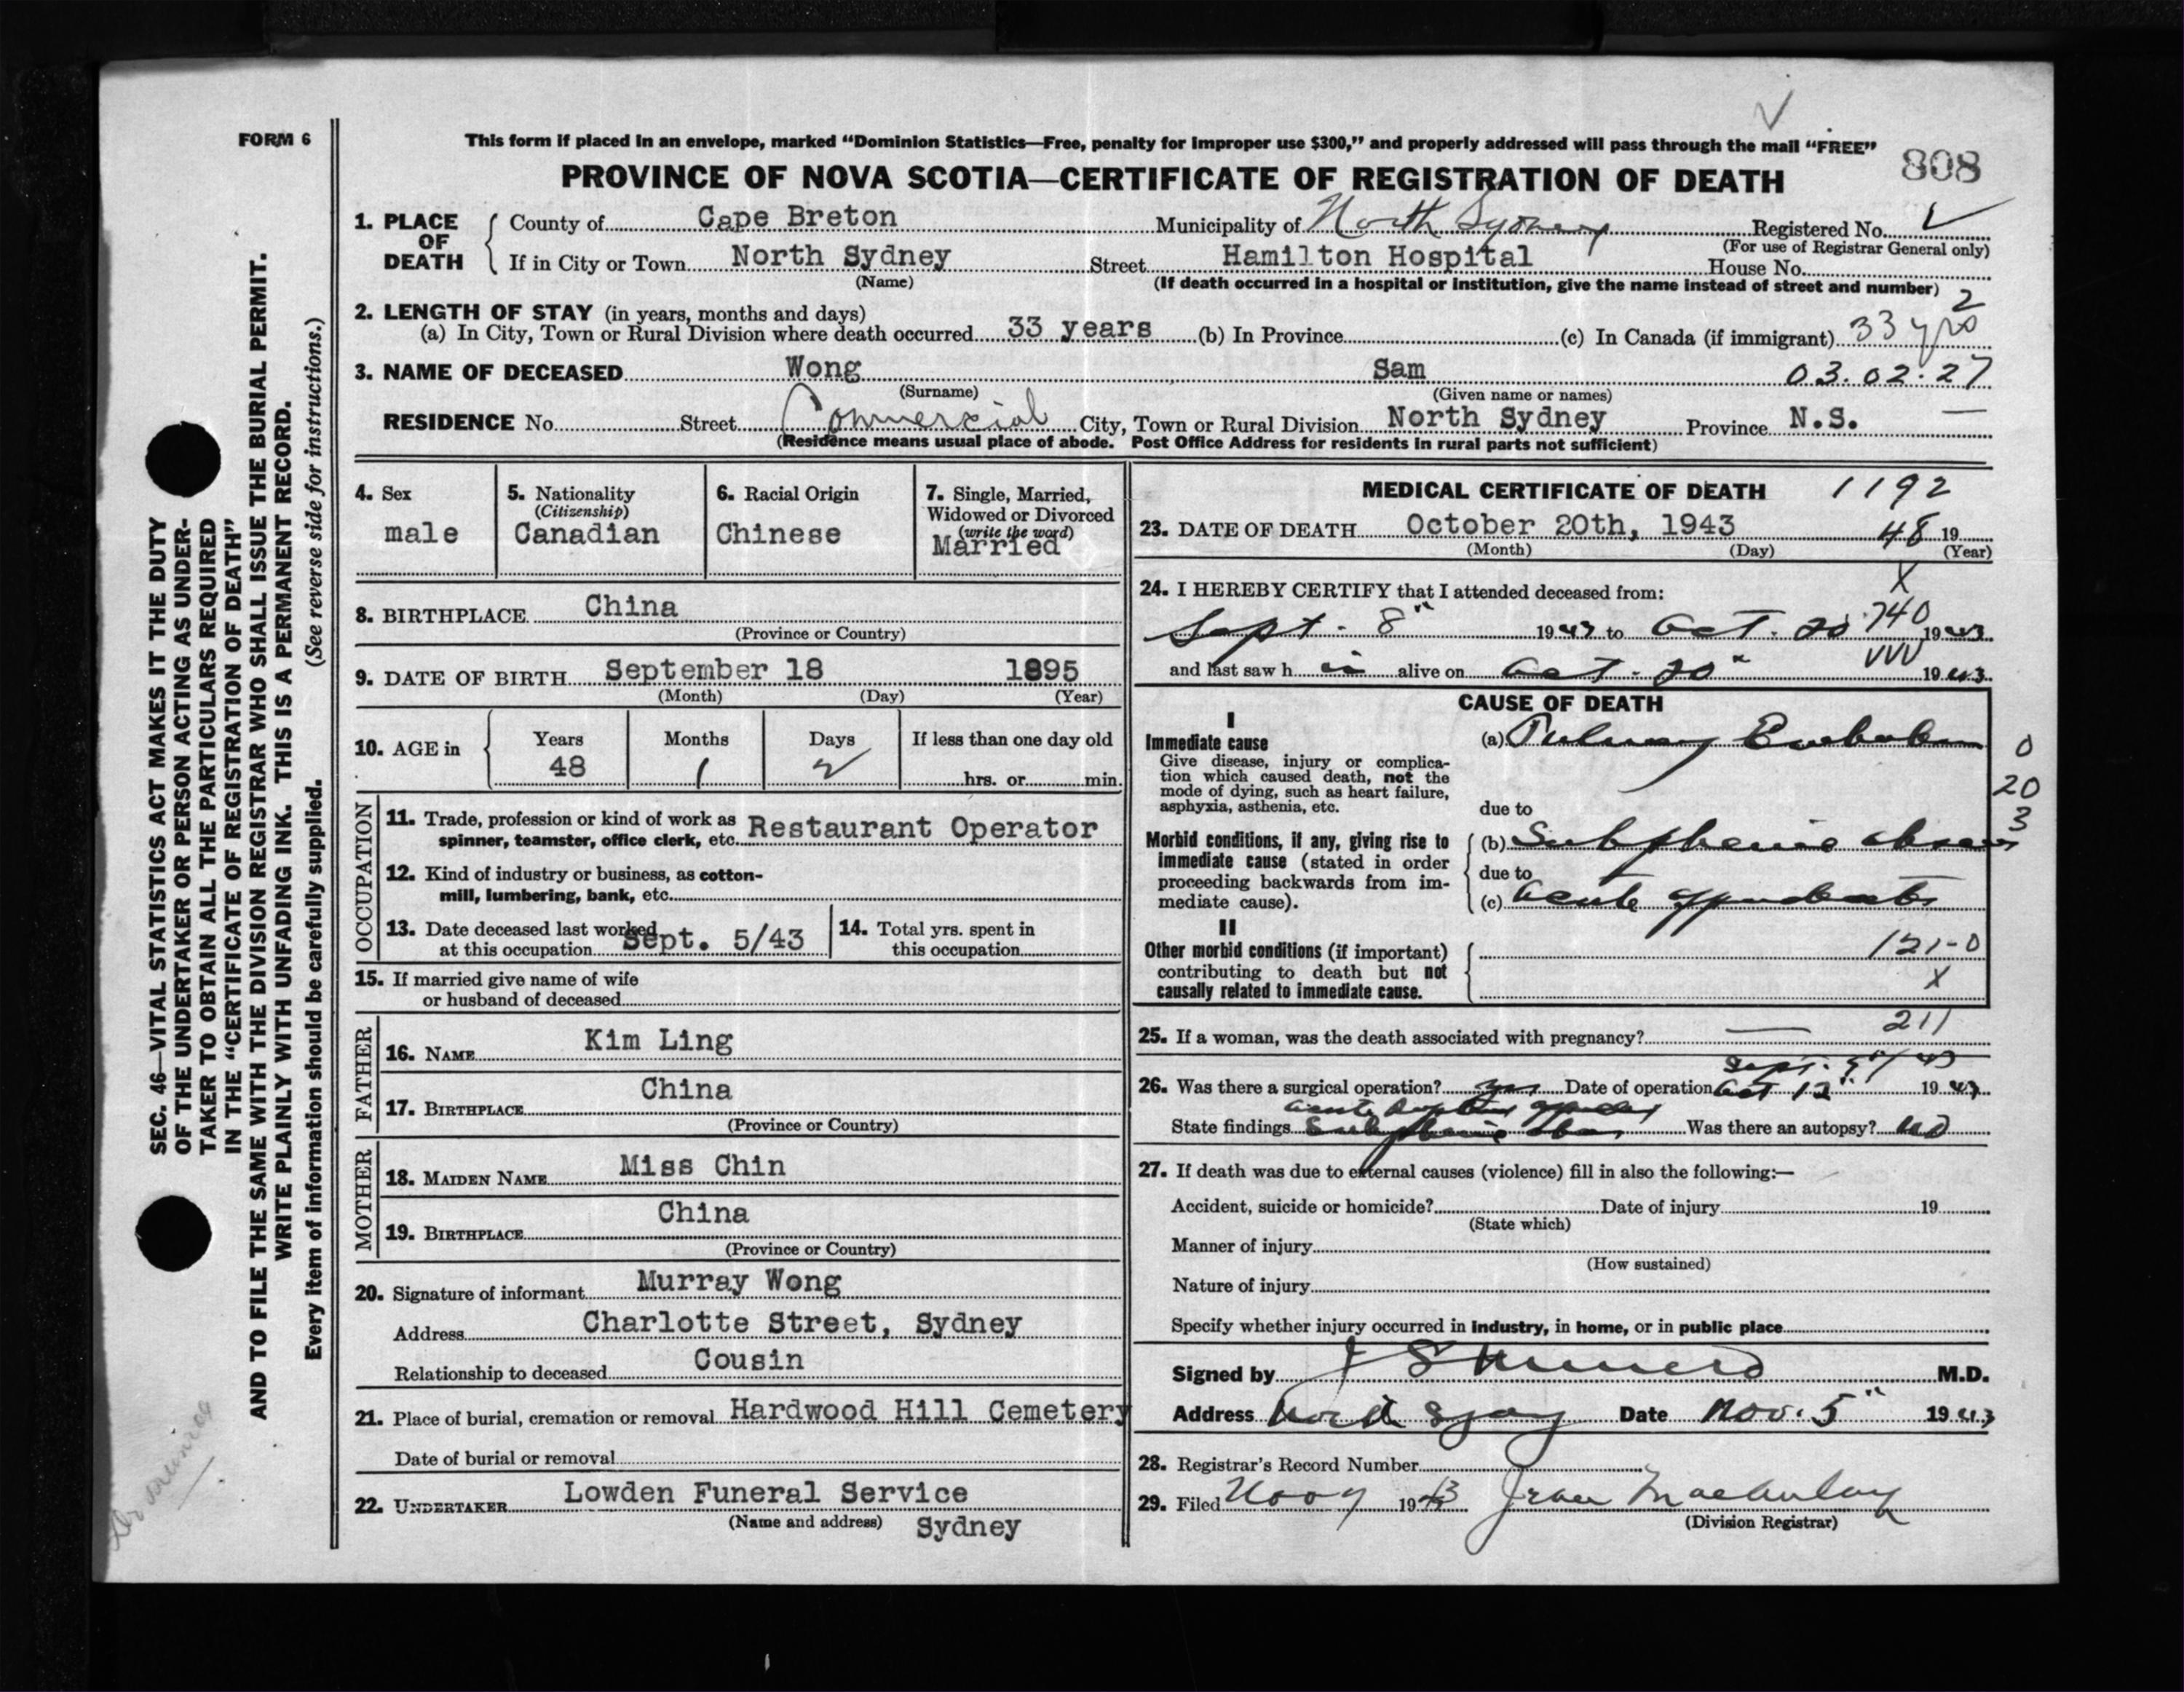 FORM 6
This form if placed in an envelope, marked "Dominion Statistics—Free, penalty for improper use $300," and properly addressed will pass through the mail "FREE"
PROVINCE OF NOVA SCOTIA—CERTIFICATE OF REGISTRATION OF DEATH
808
1. PLACE OF DEATH
County of Cape Breton Municipality of North Sydney Registered No.
(For use of Registrar General only)
If in City or Town North Sydney Street Hamilton Hospital House No.
(Name) (If death occurred in a hospital or institution, give the name instead of street and number)
2
2. LENGTH OF STAY (in years, months and days)
(a) In City, Town or Rural Division where death occurred 33 years (b) In Province (c) In Canada (if immigrant) 33 yrs
3. NAME OF DECEASED Wong Sam 03.02.27
(Surname) (Given name or names)
RESIDENCE No. Street Commercial City, Town or Rural Division North Sydney Province N.S. —
(Residence means usual place of abode. Post Office Address for residents in rural parts not sufficient)
4. Sex
male
5. Nationality
(Citizenship)
Canadian
6. Racial Origin
Chinese
7. Single, Married,
Widowed or Divorced
(write the word)
Married
8. BIRTHPLACE China
(Province or Country)
9. DATE OF BIRTH September 18 1895
(Month) (Day) (Year)
10. AGE in
Years Months Days If less than one day old
48 1 2 hrs. or min.
OCCUPATION
11. Trade, profession or kind of work as
spinner, teamster, office clerk, etc. Restaurant Operator
12. Kind of industry or business, as cotton-
mill, lumbering, bank, etc.
13. Date deceased last worked
at this occupation Sept. 5/43
14. Total yrs. spent in
this occupation
15. If married give name of wife
or husband of deceased
FATHER
16. NAME Kim Ling
17. BIRTHPLACE China
(Province or Country)
MOTHER
18. MAIDEN NAME Miss Chin
19. BIRTHPLACE China
(Province or Country)
20. Signature of informant Murray Wong
Address Charlotte Street, Sydney
Relationship to deceased Cousin
21. Place of burial, cremation or removal Hardwood Hill Cemetery
Date of burial or removal
22. UNDERTAKER Lowden Funeral Service
(Name and address) Sydney
MEDICAL CERTIFICATE OF DEATH 1192
23. DATE OF DEATH October 20th, 1943 48 19
(Month) (Day) (Year)
X
24. I HEREBY CERTIFY that I attended deceased from:
Sept. 8" 1943 to Oct. 20 740 1943
and last saw h im alive on Oct. 20" 1943
CAUSE OF DEATH
I
Immediate cause
Give disease, injury or complica-
tion which caused death, not the
mode of dying, such as heart failure,
asphyxia, asthenia, etc.
(a) Pulmonary Embolism 0
20
due to
3
Morbid conditions, if any, giving rise to
immediate cause (stated in order
proceeding backwards from im-
mediate cause).
(b) Subphrenic abscess
due to
(c) acute appendicitis
II
Other morbid conditions (if important)
contributing to death but not
causally related to immediate cause.
121-0
X
211
25. If a woman, was the death associated with pregnancy? —
Sept. 9"/43
26. Was there a surgical operation? yes Date of operation Oct 12" 1943
acute
State findings Subphrenic Was there an autopsy? no
27. If death was due to external causes (violence) fill in also the following:—
Accident, suicide or homicide? Date of injury 19
(State which)
Manner of injury
(How sustained)
Nature of injury
Specify whether injury occurred in industry, in home, or in public place
Signed by M.D.
Address North Sydney Date Nov. 5" 1943
28. Registrar's Record Number
29. Filed Nov 9 1943
(Division Registrar)
SEC. 46—VITAL STATISTICS ACT MAKES IT THE DUTY
OF THE UNDERTAKER OR PERSON ACTING AS UNDER-
TAKER TO OBTAIN ALL THE PARTICULARS REQUIRED
IN THE "CERTIFICATE OF REGISTRATION OF DEATH"
AND TO FILE THE SAME WITH THE DIVISION REGISTRAR WHO SHALL ISSUE THE BURIAL PERMIT.
WRITE PLAINLY WITH UNFADING INK. THIS IS A PERMANENT RECORD.
Every item of information should be carefully supplied. (See reverse side for instructions.)